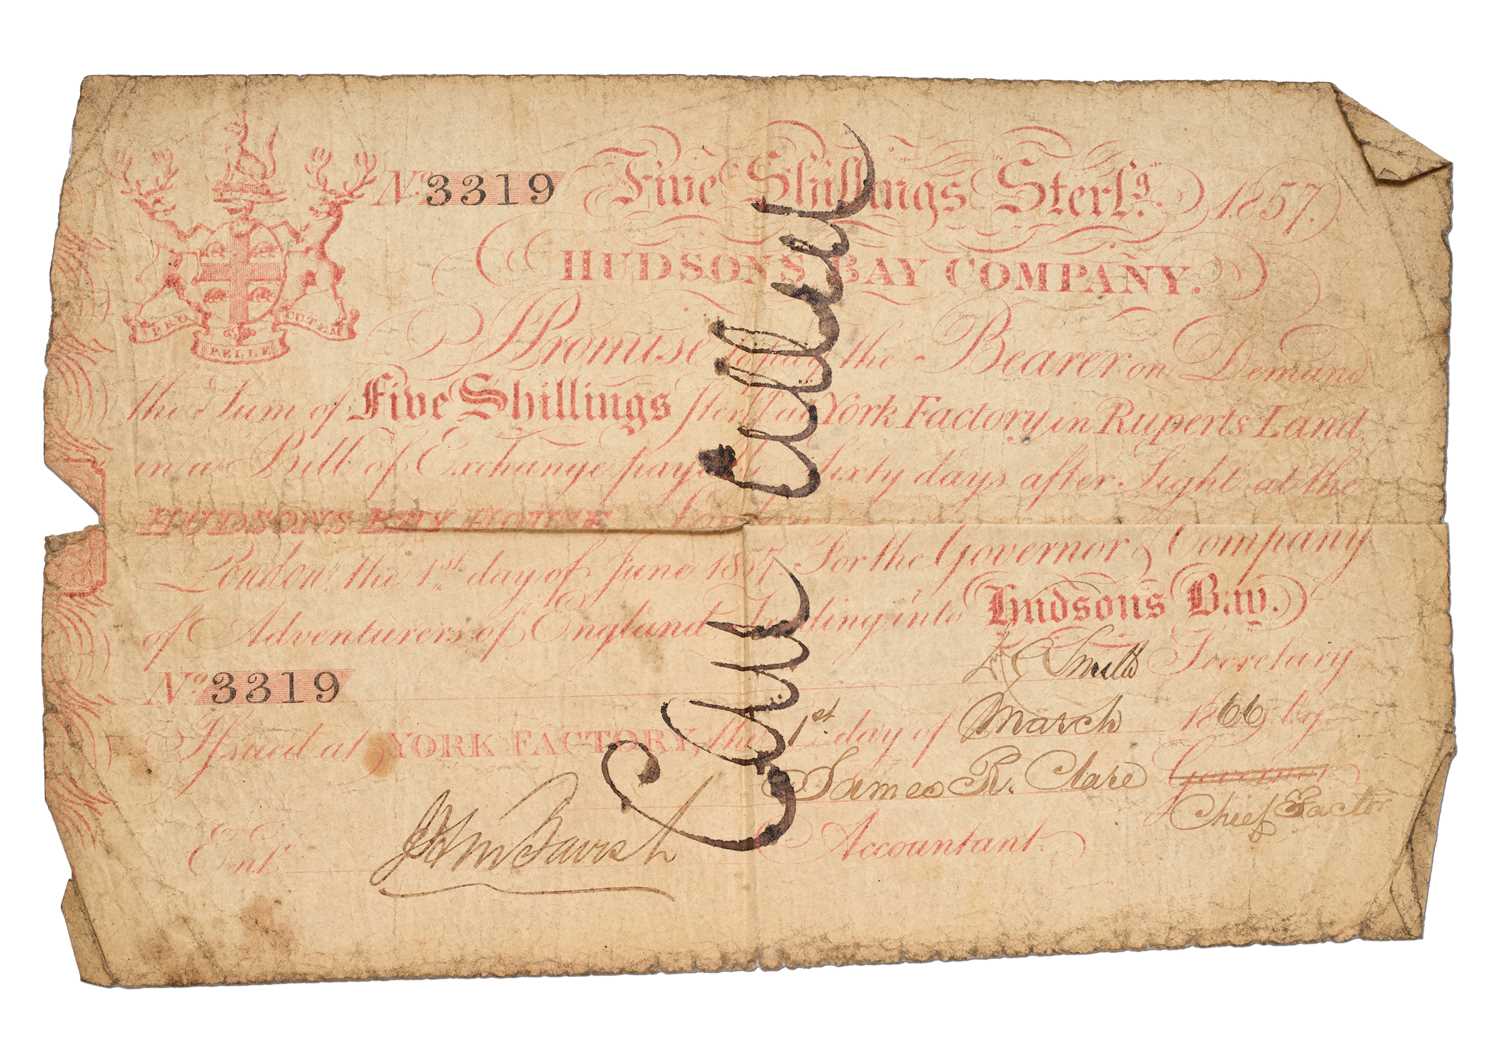 No. 3319 Five Shillings Sterl.g 1857.
HUDSONS BAY COMPANY.
PRO CUTEM
PELLE
I Promise to pay the Bearer on Demand
the Sum of Five Shillings Sterl.g at York Factory in Ruperts Land
in a Bill of Exchange payable Sixty days after Sight at the
HUDSONS BAY HOUSE London
London, the 1st day of June 1857 For the Governor & Company
of Adventurers of England Trading into Hudsons Bay.
Smith Secretary
No. 3319
Issued at YORK FACTORY, the 1st day of March 1866 by
James R. Clare Governor
Chief Factor
Ent.
Accountant.
Cancelled